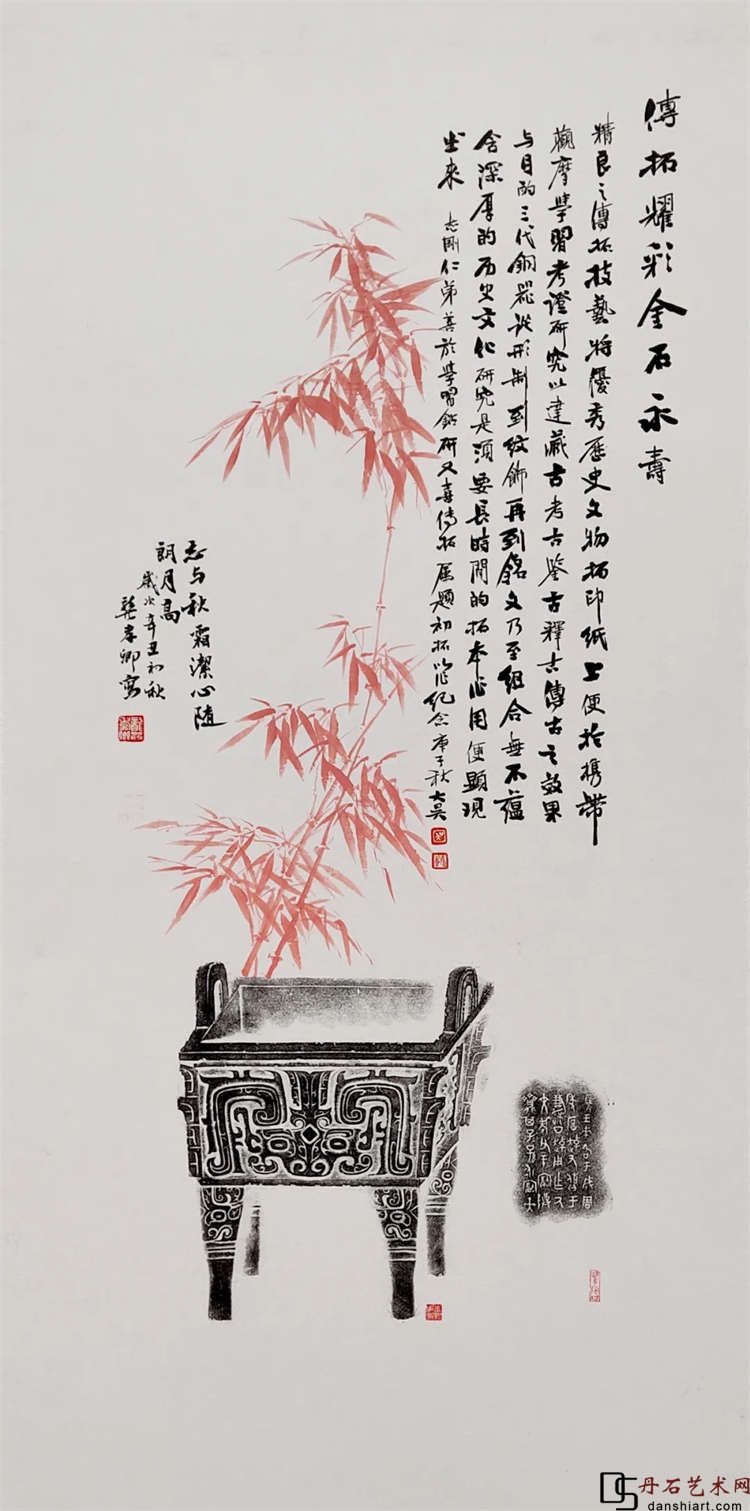 傳拓耀彩金石永壽
精良之傳拓技藝將優秀歷史文物拓印紙上便於携帶
觀摩學習考證研究以達藏古考古鑒古釋古傳古之效果
与目的三代銅器從形制到紋飾再到銘文乃至組合無不蘊
含深厚的历史文化研究是須要長時間的拓本作用便顯現
出來 志剛仁弟善於學習鉆研又喜傳拓屬題初拓以作紀念庚子秋大吴
志与秋霜潔心随
朗月高
歲次辛丑初秋
龔孝卿寫
丹石艺术网
danshiart.com